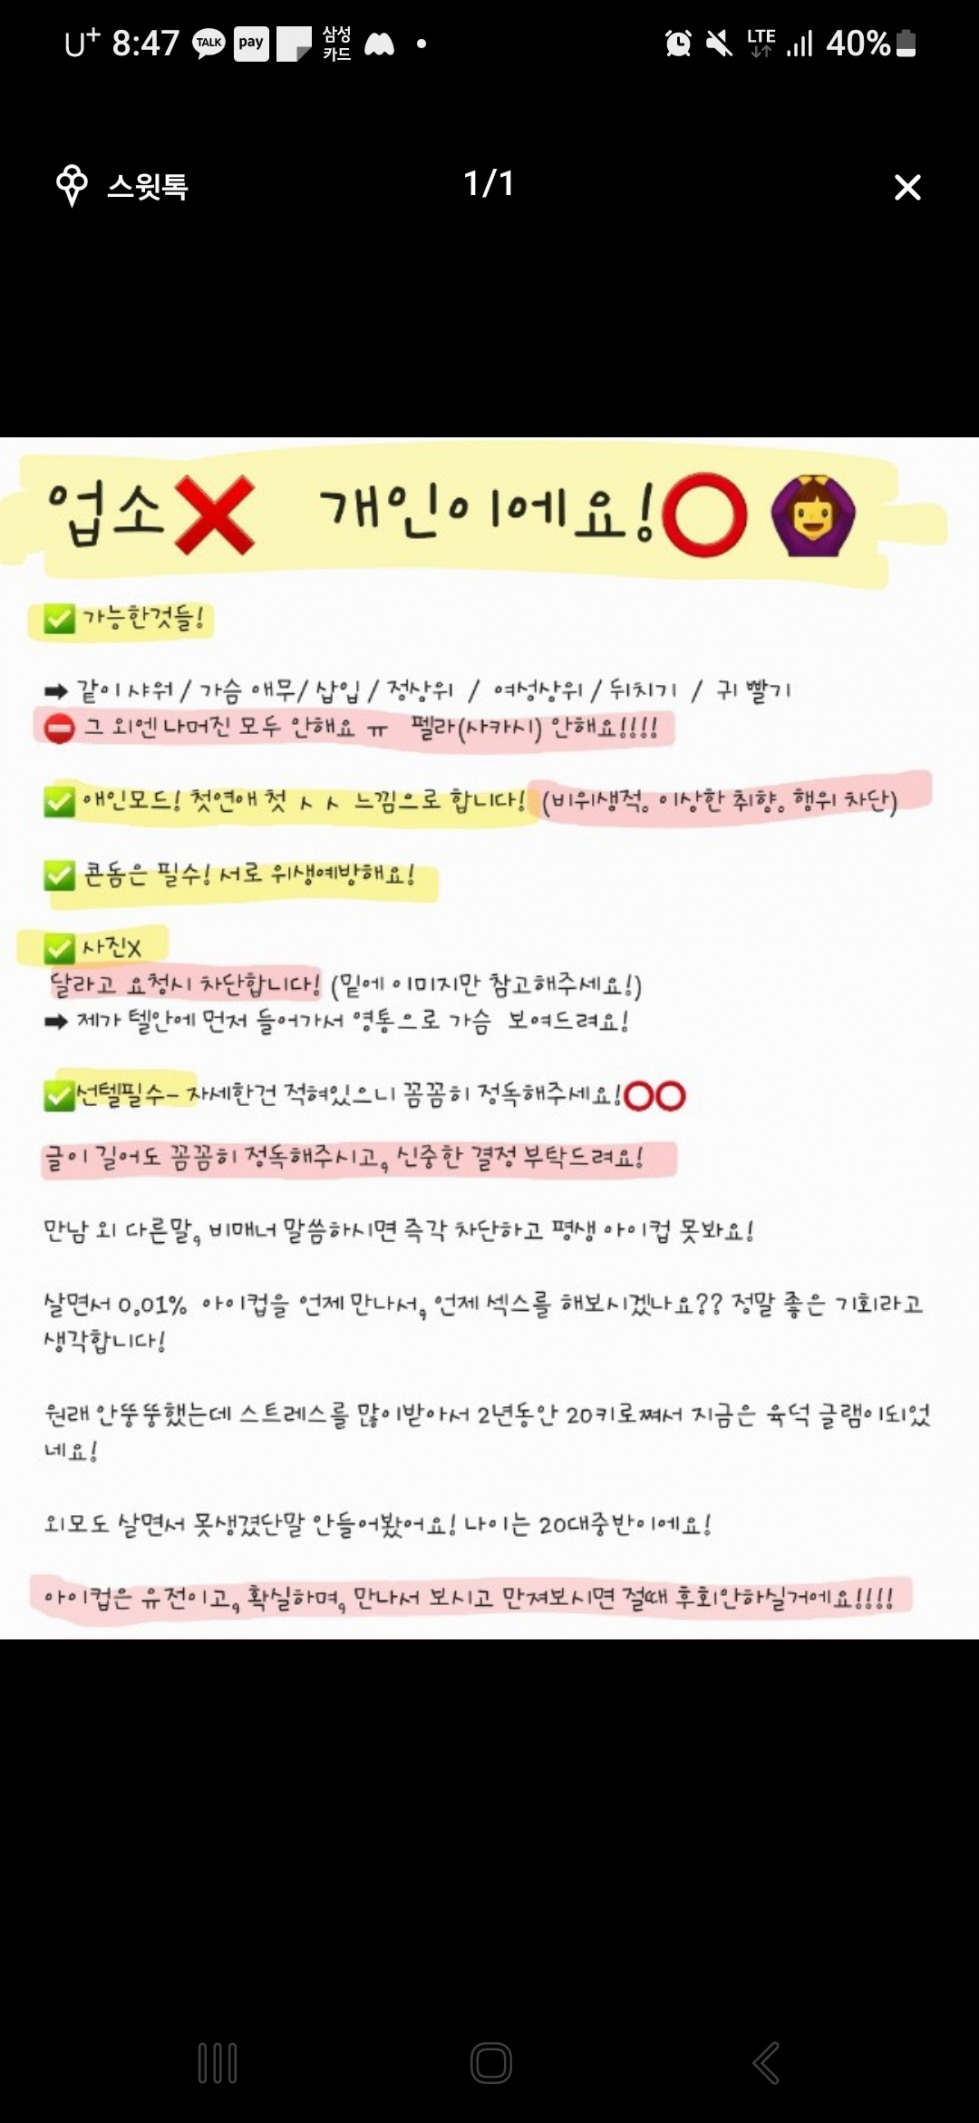 U+ 8:47 TALK pay 삼성카드 LTE 40%
스윗톡 1/1
업소❌ 개인이에요!⭕🙆‍♀️
✅가능한것들!
➡ 같이샤워 / 가슴 애무/ 삽입 / 정상위 / 여성상위 / 뒤치기 / 귀 빨기
⛔ 그 외엔 나머진 모두 안해요 ㅠ 펠라(사카시) 안해요!!!!
✅ 애인모드! 첫연애 첫 ㅅㅅ 느낌으로 합니다! (비위생적, 이상한 취향, 행위 차단)
✅ 콘돔은 필수! 서로 위생예방해요!
✅ 사진X
달라고 요청시 차단합니다! (밑에 이미지만 참고해주세요!)
➡ 제가 텔안에 먼저 들어가서 영통으로 가슴 보여드려요!
✅선텔필수- 자세한건 적혀있으니 꼼꼼히 정독해주세요!⭕⭕
글이 길어도 꼼꼼히 정독해주시고, 신중한 결정 부탁드려요!
만남 외 다른말, 비매너 말씀하시면 즉각 차단하고 평생 아이컵 못봐요!
살면서 0,01% 아이컵을 언제 만나서, 언제 섹스를 해보시겠나요?? 정말 좋은 기회라고
생각합니다!
원래 안뚱뚱했는데 스트레스를 많이받아서 2년동안 20키로쪄서 지금은 육덕 글램이되었
네요!
외모도 살면서 못생겼단말 안들어봤어요! 나이는 20대중반이에요!
아이컵은 유전이고, 확실하며, 만나서 보시고 만져보시면 절때 후회안하실거에요!!!!